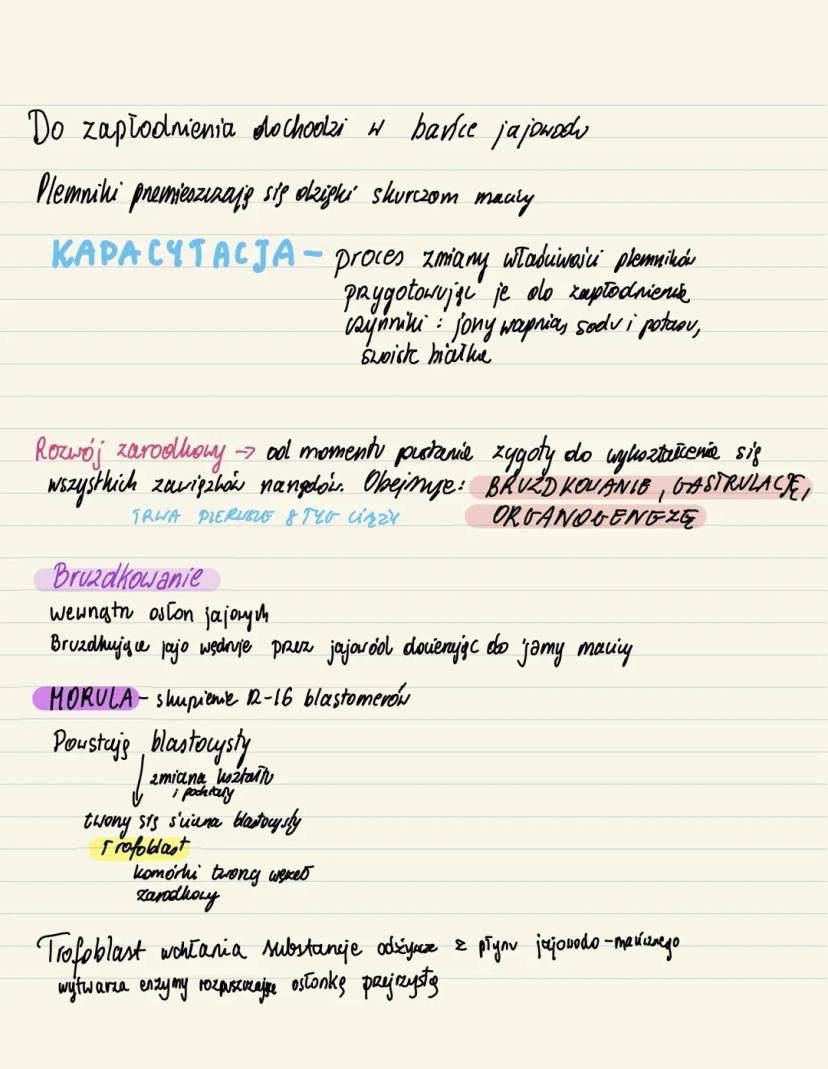 Do zapłodnienia dochodzi w bańce jajowodu
Plemniki przemieszczają się dzięki skurczom macicy
KAPACYTACJA – proces zmiany właściwości plemników
przygotowując je do zapłodnienia
czynniki : jony wapnia, sodu i potasu,
swoiste białka
Rozwój zarodkowy → od momentu powstania zygoty do wykształcenia się
wszystkich zawiązków narządów. Obejmuje: BRUZDKOWANIE, GASTRULACJĘ,
TRWA PIERWSZE 8 TYG CIĄŻY ORGANOGENEZĘ
Bruzdkowanie
wewnątrz osłon jajowych
Bruzdkujące jajo wędruje przez jajowód docierając do jamy macicy
MORULA – skupienie 12-16 blastomerów
Powstają blastocysty
zmiana kształtu
i podziały
tworzy się ściana blastocysty
Trofoblast
komórki tworzą węzeł
zarodkowy
Trofoblast wchłania substancje odżywcze z płynu jajowodo-macicznego
wytwarza enzymy rozpuszczające osłonkę przejrzystą